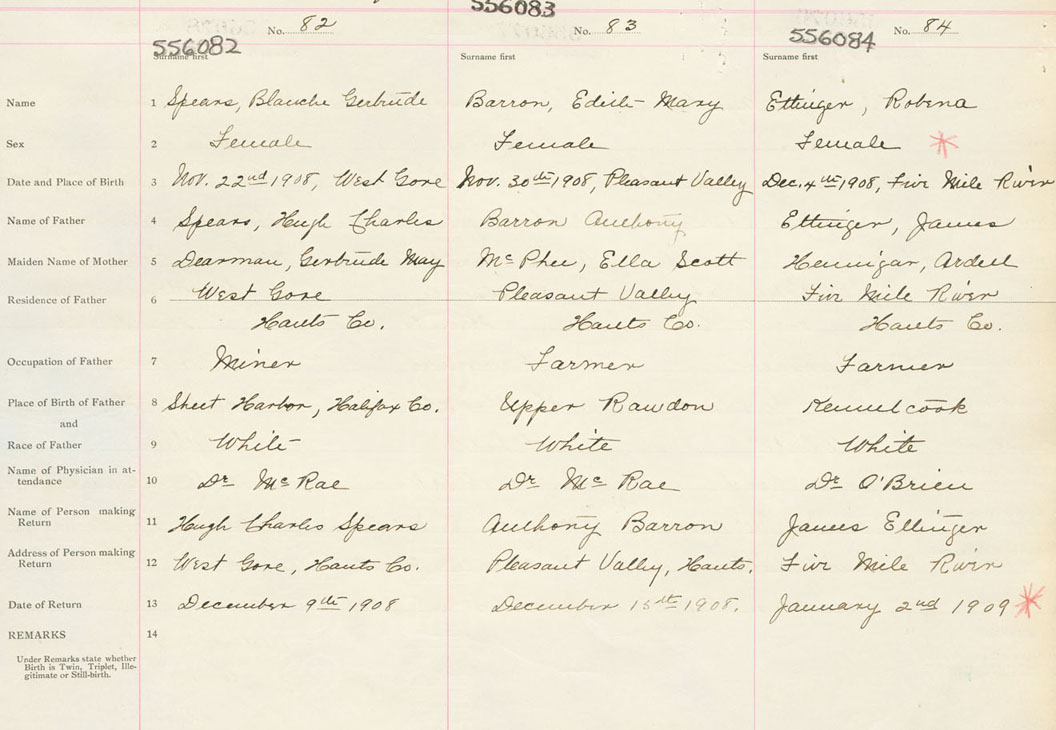 556083
No. 82 No. 83 No. 84
556082 556084
Surname first Surname first Surname first
Name 1 Spears, Blanche Gertrude Barron, Edith Mary Ettinger, Robena
Sex 2 Female Female Female *
Date and Place of Birth 3 Nov. 22nd 1908, West Gore Nov. 30th 1908, Pleasant Valley Dec. 4th 1908, Five Mile River
Name of Father 4 Spears, Hugh Charles Barron Anthony Ettinger, James
Maiden Name of Mother 5 Dearman, Gertrude May McPhee, Ella Scott Hennigar, Ardell
Residence of Father 6 West Gore Pleasant Valley Five Mile River
Hants Co. Hants Co. Hants Co.
Occupation of Father 7 Miner Farmer Farmer
Place of Birth of Father 8 Sheet Harbor, Halifax Co. Upper Rawdon Kennetcook
and
Race of Father 9 White White White
Name of Physician in at-
tendance 10 Dr McRae Dr McRae Dr O'Brien
Name of Person making
Return 11 Hugh Charles Spears Anthony Barron James Ettinger
Address of Person making
Return 12 West Gore, Hants Co. Pleasant Valley, Hants. Five Mile River
Date of Return 13 December 9th 1908 December 15th 1908. January 2nd 1909 *
REMARKS 14
Under Remarks state whether
Birth is Twin, Triplet, Ille-
gitimate or Still-birth.